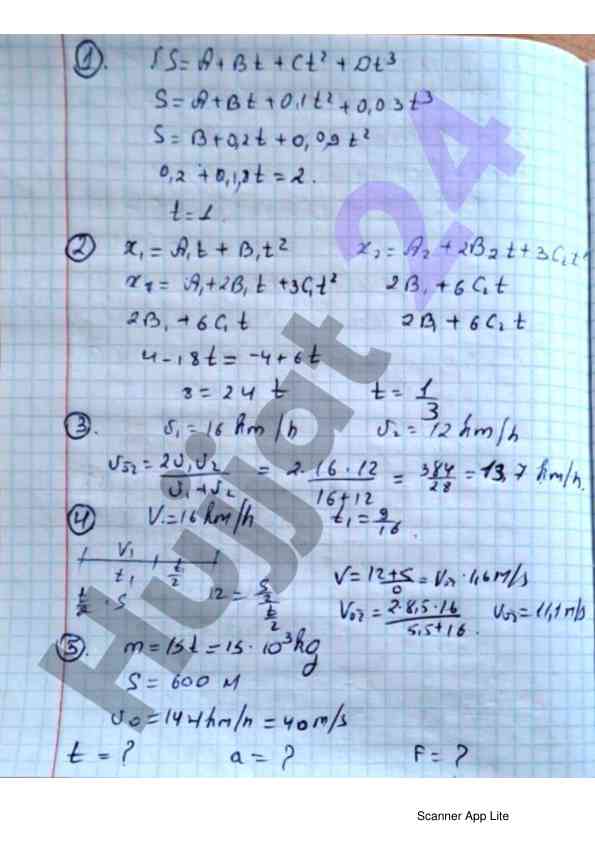 1. S = A + Bt + Ct² + Dt³
S = A + Bt + 0,1t² + 0,03t³
S = B + 0,2t + 0,09t²
0,2 + 0,18t = 2.
t = 1.
2 x₁ = A₁t + B₁t² x₂ = A₂ + 2B₂t + 3C₂t²
= A₁ + 2B₁t + 3C₁t² 2B₁ + 6C₂t
2B₁ + 6C₁t 2B₁ + 6C₂t
4 - 18t = -4 + 6t
8 = 24 t t = 1/3
3. υ₁ = 16 km/h υ₂ = 12 km/h
= 2υ₁υ₂/(υ₁+υ₂) = 2·16·12/(16+12) = 384/28 = 13,7 km/h.
4 V = 16 km/h t₁ =
V₁
t₁ t/2
t/2 · S 12 = V = = 1,6 m/s
= 2·8,5·16/(5,5+16)
5. m = 15t = 15·10³kg
S = 600 м
υ0 = 144km/h = 40m/s
t = ? a = ? F = ?
Hujjat 24
Scanner App Lite